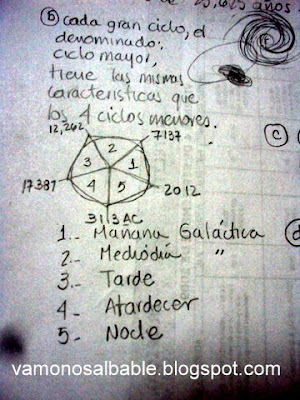 de 25,625 años
(b) cada gran ciclo, el
denominado:
ciclo mayor,
tiene las mismas
características que
los 4 ciclos menores.
12,262
7137
2
3
1
4
5
17387
2012
3113 AC
(c)
1.- Mañana Galáctica
2.- Mediodía "
3.- Tarde
4.- Atardecer
5.- Noche
vamonosalbable.blogspot.com